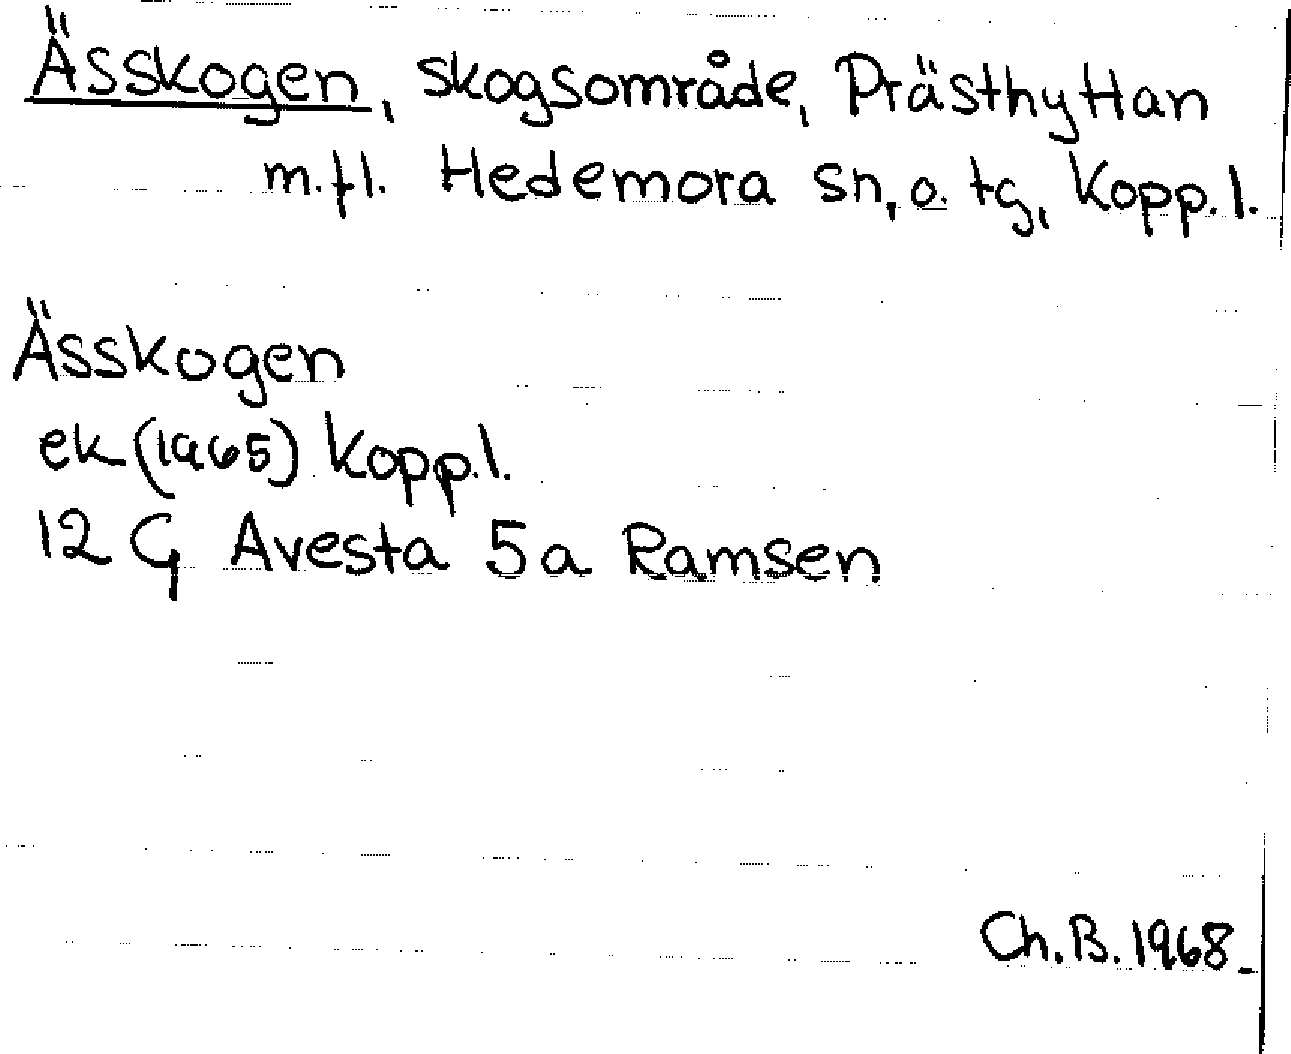 Ässkogen, skogsområde, Prästhyttan
m.fl. Hedemora sn, o. tg, Kopp.l.
Ässkogen
ek (1965) Kopp.l.
12 G Avesta 5a Ramsen
Ch.B. 1968